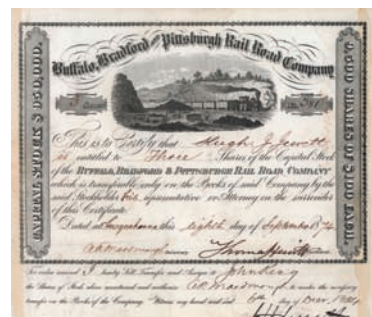 Buffalo, Bradford and Pittsburgh Rail Road Company
CAPITAL STOCK $
SHARES OF $100 EACH.
3
This is to Certify that Hugh J. Jewett
is entitled to Three Shares of the Capital Stock
of the BUFFALO, BRADFORD & PITTSBURGH RAIL ROAD COMPANY
which is transferable only on the Books of said Company by the
said Stockholder his representative or Attorney on the surrender
of this Certificate.
Dated at this eighth day of September 1874
For value received I hereby Sell Transfer and Assign to John King
the Shares of Stock above mentioned and authorize to make the necessary
transfer on the Books of the Company. Witness my hand and seal 6th day of 1884